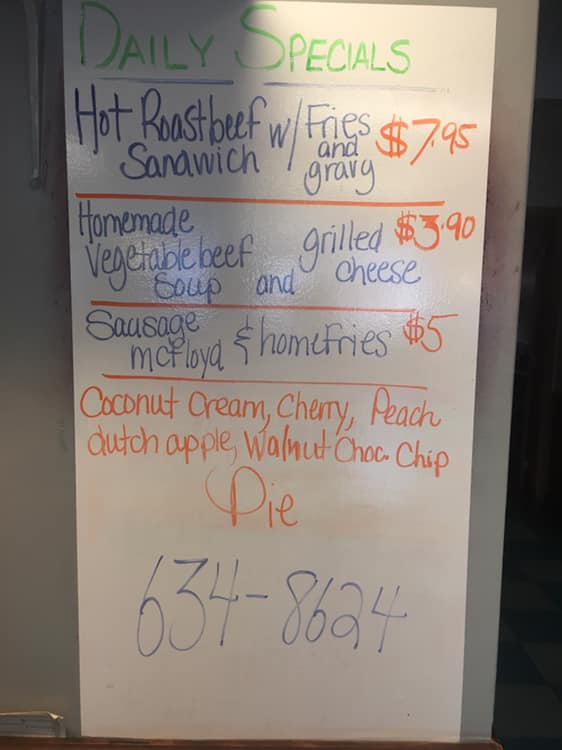 DAILY SPECIALS
Hot Roastbeef w/ Fries $7.95
Sandwich and
gravy
Homemade $3.90
Vegetable beef grilled
Soup and cheese
Sausage $5
mcfloyd & homefries
Coconut Cream, Cherry, Peach
dutch apple, Walnut Choc. Chip
Pie
634-8624